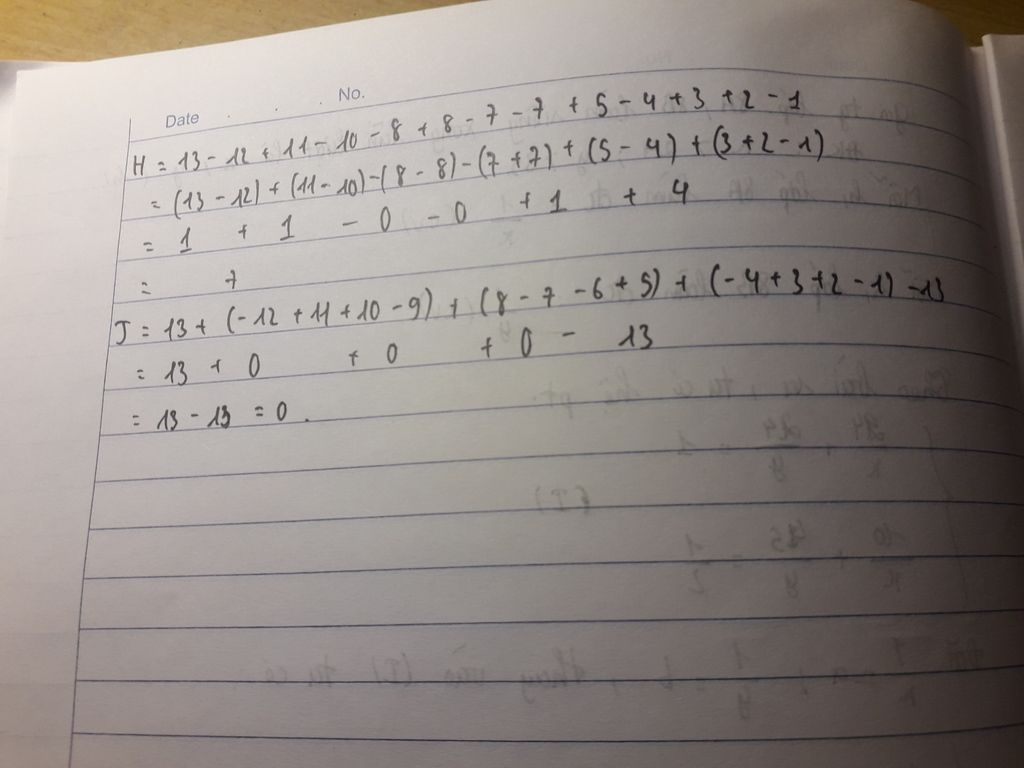 Date No.
H = 13 - 12 + 11 - 10 - 8 + 8 - 7 - 7 + 5 - 4 + 3 + 2 - 1
= (13 - 12) + (11 - 10) - (8 - 8) - (7 + 7) + (5 - 4) + (3 + 2 - 1)
= 1 + 1 - 0 - 0 + 1 + 4
= 7
J = 13 + (-12 + 11 + 10 - 9) + (8 - 7 - 6 + 5) + (-4 + 3 + 2 - 1) - 13
= 13 + 0 + 0 + 0 - 13
= 13 - 13 = 0.